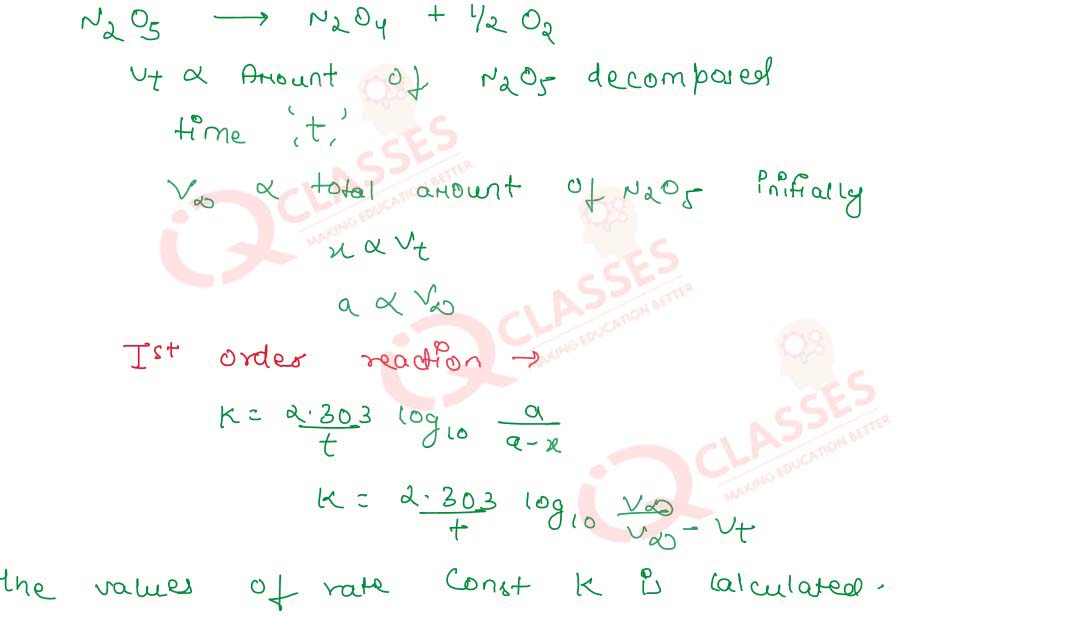 N₂O₅ ⟶ N₂O₄ + 1/2 O₂
Vt ∝ Amount of N₂O₅ decomposed
time 't'
V∞ ∝ total amount of N₂O₅ initially
x ∝ Vt
a ∝ V∞
Ist order reaction →
K = 2.303/t log₁₀ a/a-x
K = 2.303/t log₁₀ V∞/V∞ - Vt
the values of rate Const K is Calculated.
CLASSES
MAKING EDUCATION BETTER
CLASSES
MAKING EDUCATION BETTER
CLASSES
MAKING EDUCATION BETTER